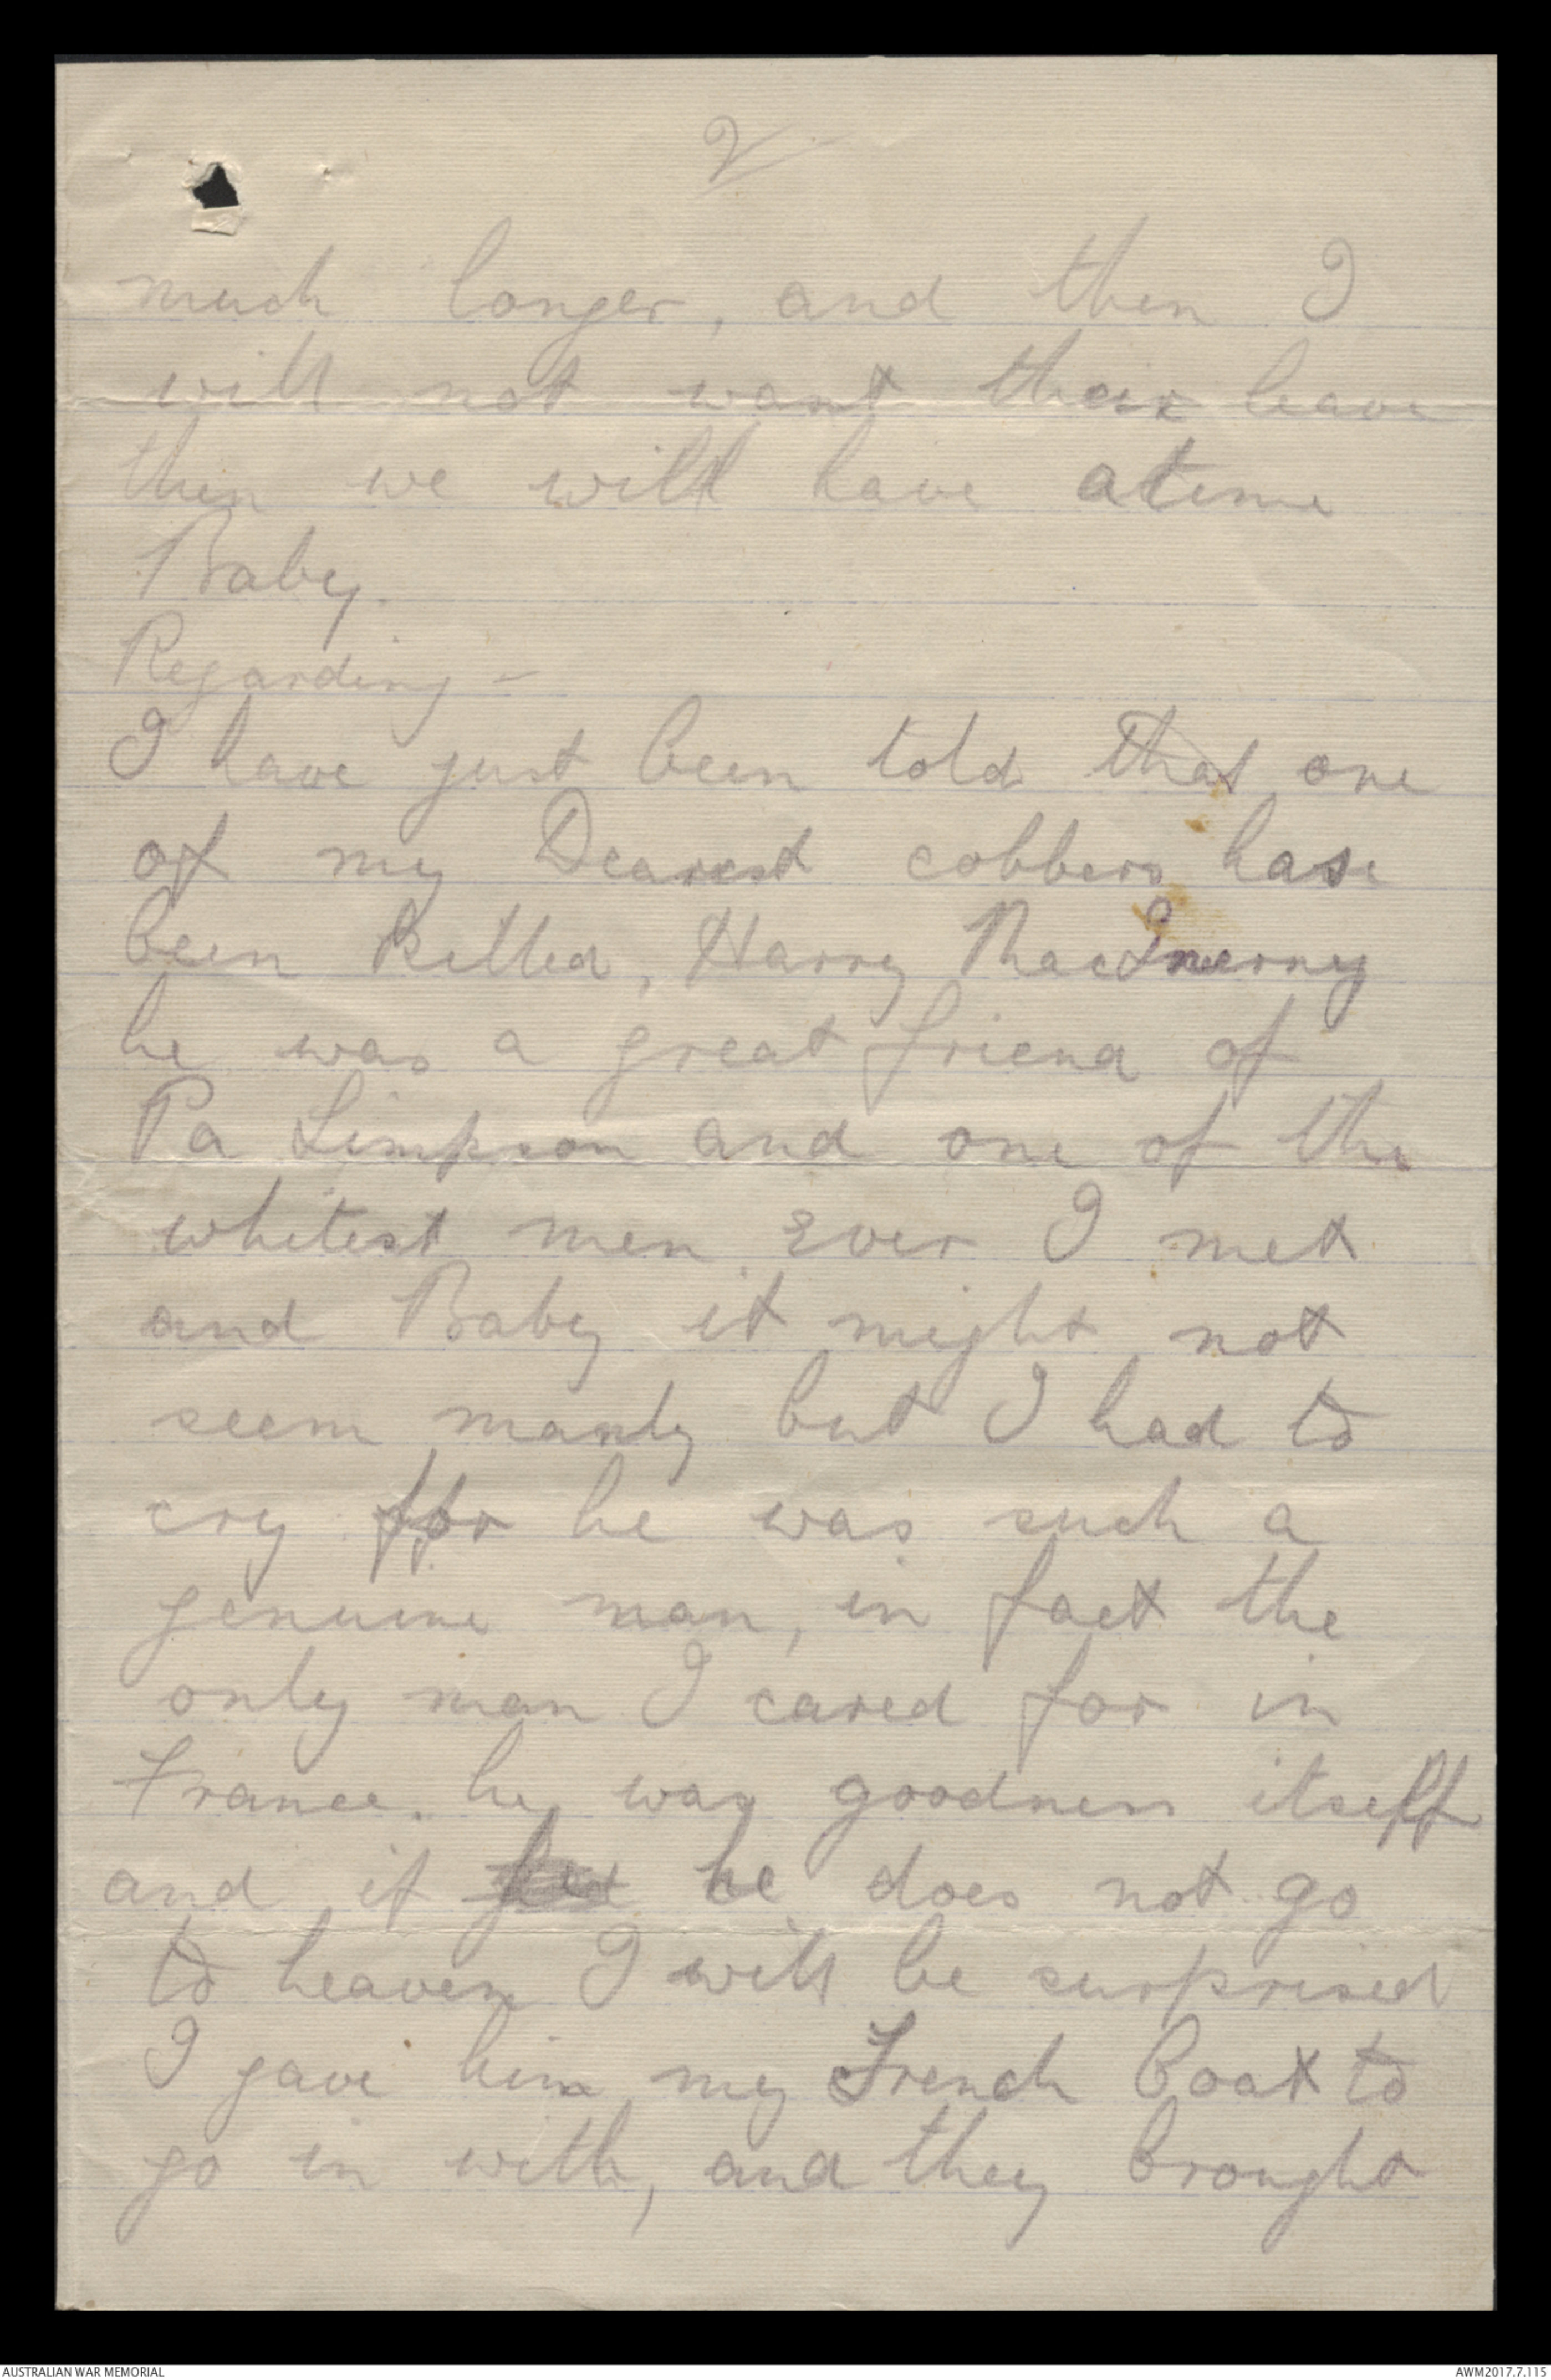 2
much longer, and then I
will not want their leave
then we will have a time
Baby.
Regarding -
I have just been told that one
of my Dearest cobbers has
been killed, Harry MacInerney
he was a great friend of
Pa Simpson and one of the
whitest men ever I met
and Baby it might not
seem manly but I had to
cry for he was such a
genuine man, in fact the
only man I cared for in
France. he was goodness itself
and if he does not go
to heaven I will be surprised
I gave him my French Coat to
go in with, and they brought
AUSTRALIAN WAR MEMORIAL
AWM2017.7.115